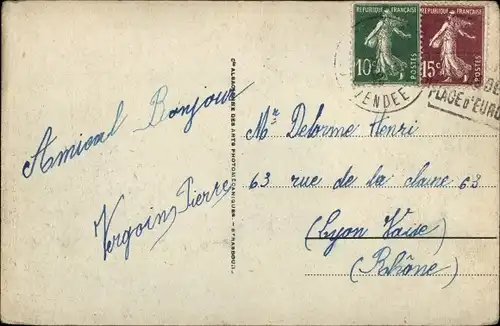 RÉPUBLIQUE FRANÇAISE
10c
POSTES
RÉPUBLIQUE FRANÇAISE
15c
POSTES
VENDEE
PLAGE d'EURO
Amical Bonjour
Vergoin Pierre
Cie ALSACIENNE DES ARTS PHOTOMÉCANIQUES - STRASBOURG
Mr Delorme Henri
63 rue de la claire 63
(Lyon Vaise)
(Rhône)